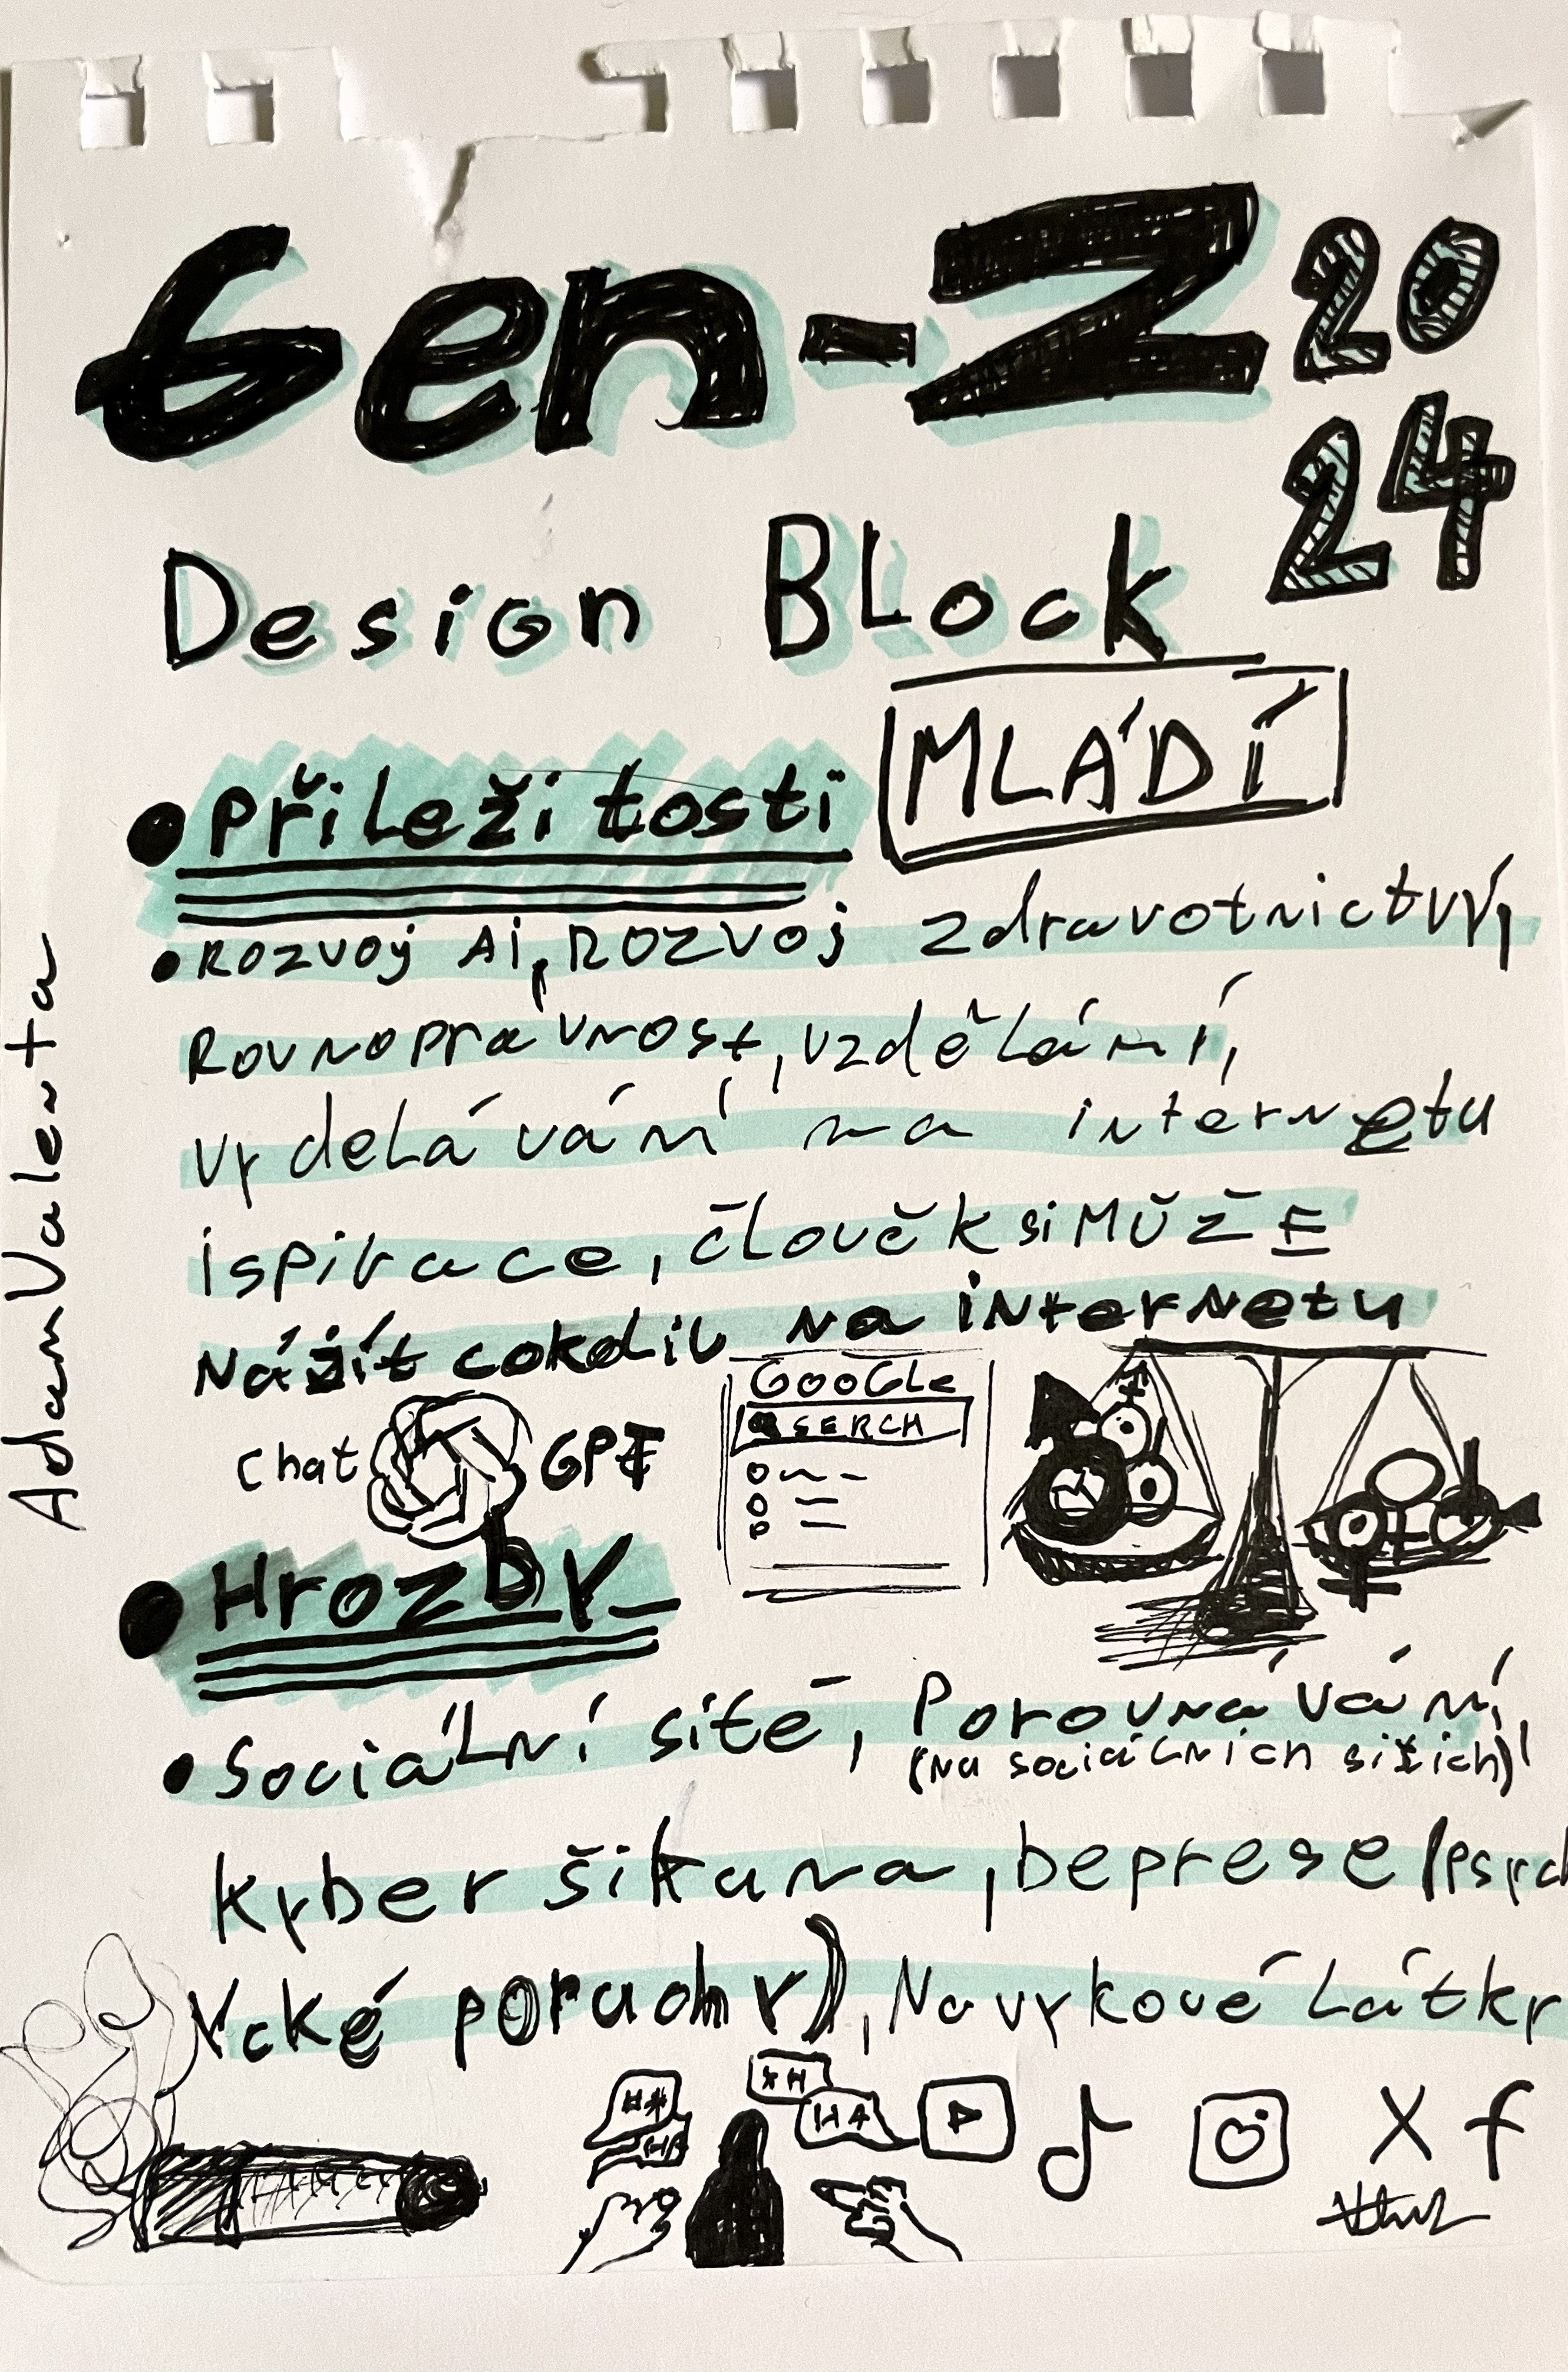 Gen-Z 20
24
Design BLock
MLÁDÍ
• Příležitosti
• Rozvoj Ai, Rozvoj zdravotnictví,
Rovnoprávnost, vzdělání,
vydelávání na internetu
ispirace, člověk si Může
Nážít cokoliv na internetu
Chat GPT
GOOGLe
SERCH
• Hrozby
• Sociální sítě, Porovnávání,
(na sociálních sítích)
kyber šikana, Deprese (Psych
ycké poruchy), Navykové Látky
HA
X f
Adam Valenta